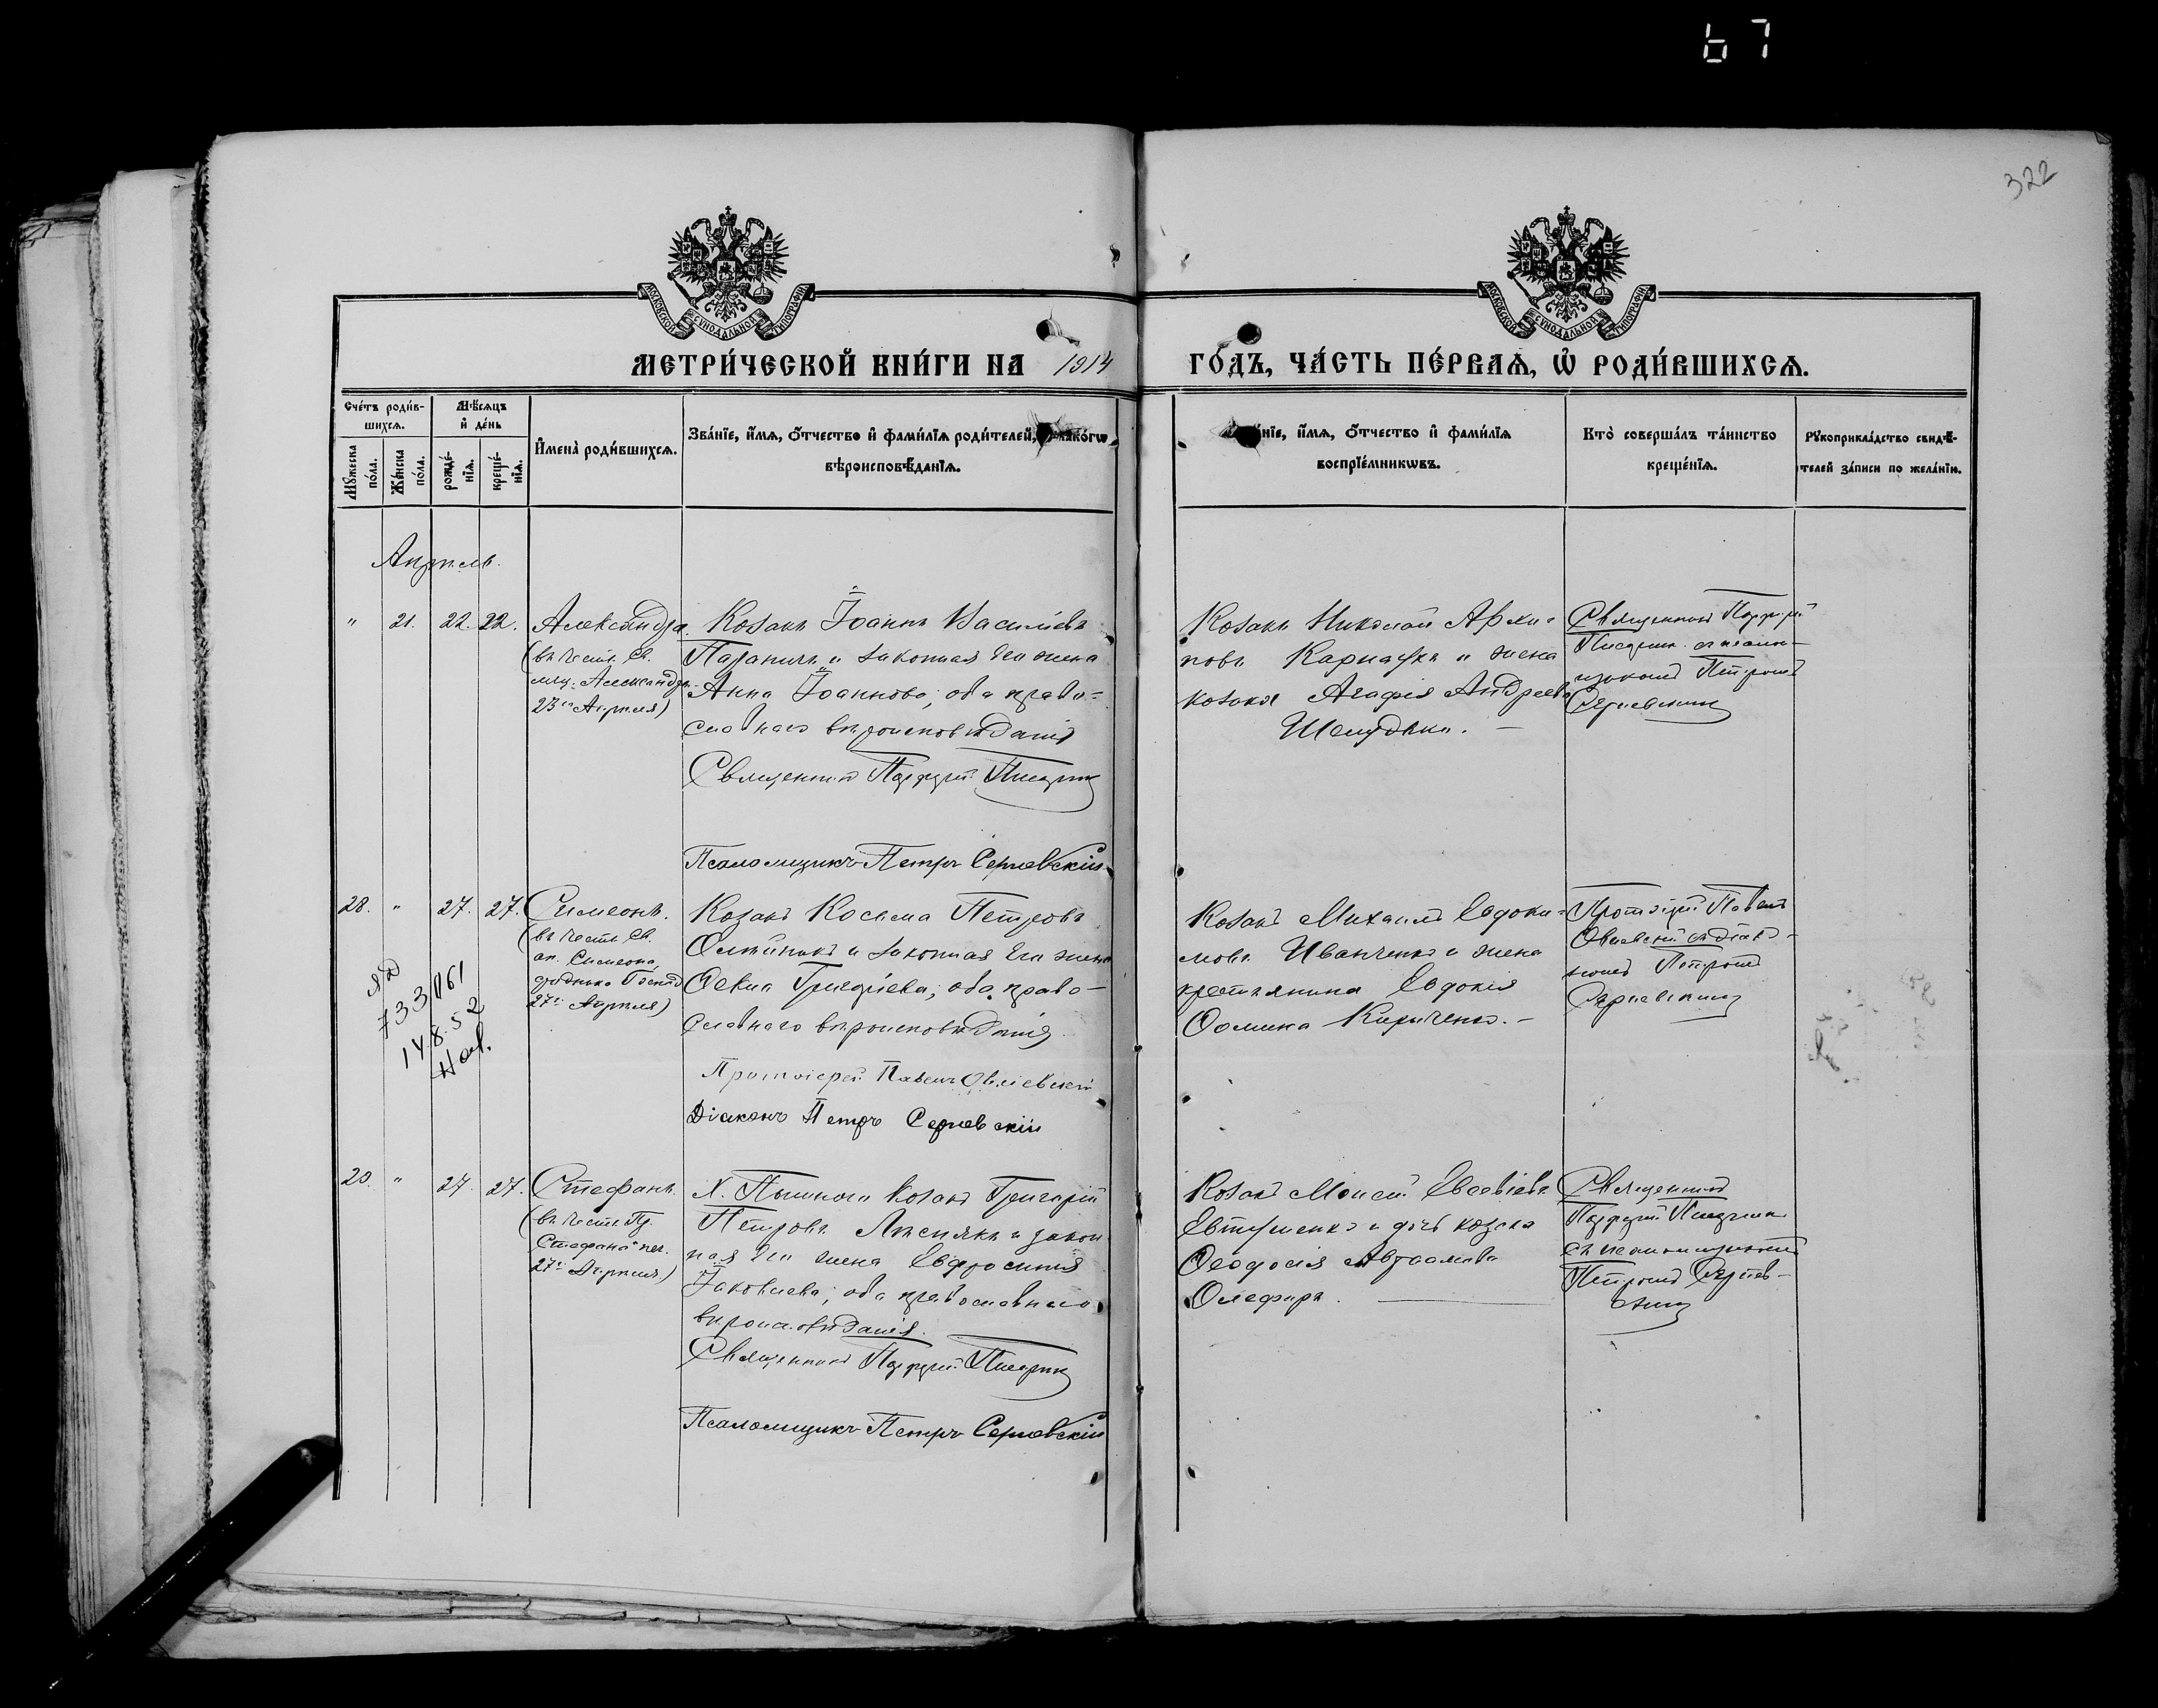 67
322
МОСКОВСКОЙ СѴНОДАЛЬНОЙ ТИПОГРАФІИ
МОСКОВСКОЙ СѴНОДАЛЬНОЙ ТИПОГРАФІИ
МЕТРИ́ЧЕСКОЙ КНИ́ГИ НА 1914 ГО́ДЪ, ЧА́СТЬ ПЕ́РВАѦ, Ѡ РОДИ́ВШИХСѦ.
Сче́тъ роди́в-
шихсѧ.
Мꙋ́жеска по́ла.
Же́нска по́ла.
Мѣ́сѧцъ
и҆ де́нь
рожде́-
нїѧ.
креще́-
нїѧ.
И҆мена̀ роди́вшихсѧ.
Зва́нїе, и҆́мѧ, ѻ҆́тчество и҆ фами́лїѧ роди́телей,
вѣроисповѣ́данїѧ.
и҆́мѧ, ѻ҆́тчество и҆ фами́лїѧ
воспрїе́мникѡвъ.
Кто̀ соверша́лъ та́инство
креще́нїѧ.
Рꙋкоприкла́дство свидѣ́-
телей за́писи по жела́нїю.
Апрѣль.
" 21. 22. 22.
Александра.
(въ честь св.
муч. Александры
23го Апрѣля)
Козакъ Іоаннъ Василіевъ
и законная его жена
Анна Іоаннова, оба право-
славнаго вѣроисповѣданія
Священникъ Порфирій
Псаломщикъ Петръ Сергіевскій
Козакъ Николай Архи-
повъ Карнаухъ и жена
козака Агафія Андреева
Шелудько. —
Священникъ Порфирій
съ псалом-
щикомъ Петромъ
Сергіевскимъ
28. " 27. 27.
Симеонъ.
(въ честь св.
ап. Симеона,
сродника Господ.
27го Апрѣля)
ЯД
733161
14 8. 52
Козакъ Косьма Петровъ
Олейникъ и законная его жена
Ѳекла Григоріева, оба право-
славнаго вѣроисповѣданія.
Протоіерей Павелъ
Діаконъ Петръ Сергіевскій
Козакъ Михаилъ Евдоки-
мовъ Иванченко и жена
крестьянина Евдокія
Ѳомина Кириченко. —
Протоіерей Павелъ
съ діако-
номъ Петромъ
Сергіевскимъ
" 27. 27.
Стефанъ.
(въ честь Пр.
Стефана печ.
27го Апрѣля)
Х. козакъ Григорій
Петровъ Лѣснякъ и закон-
ная его жена Евфросинія
Іаковлева, оба православнаго
вѣроисповѣданія.
Священникъ Порфирій
Псаломщикъ Петръ Сергіевскій
Козакъ Моисей Евсевіевъ
Евтушенко и дочь козака
Ѳеодосія
Олефиръ. —
Священникъ
Порфирій
съ псаломщикомъ
Петромъ Сергіев-
скимъ